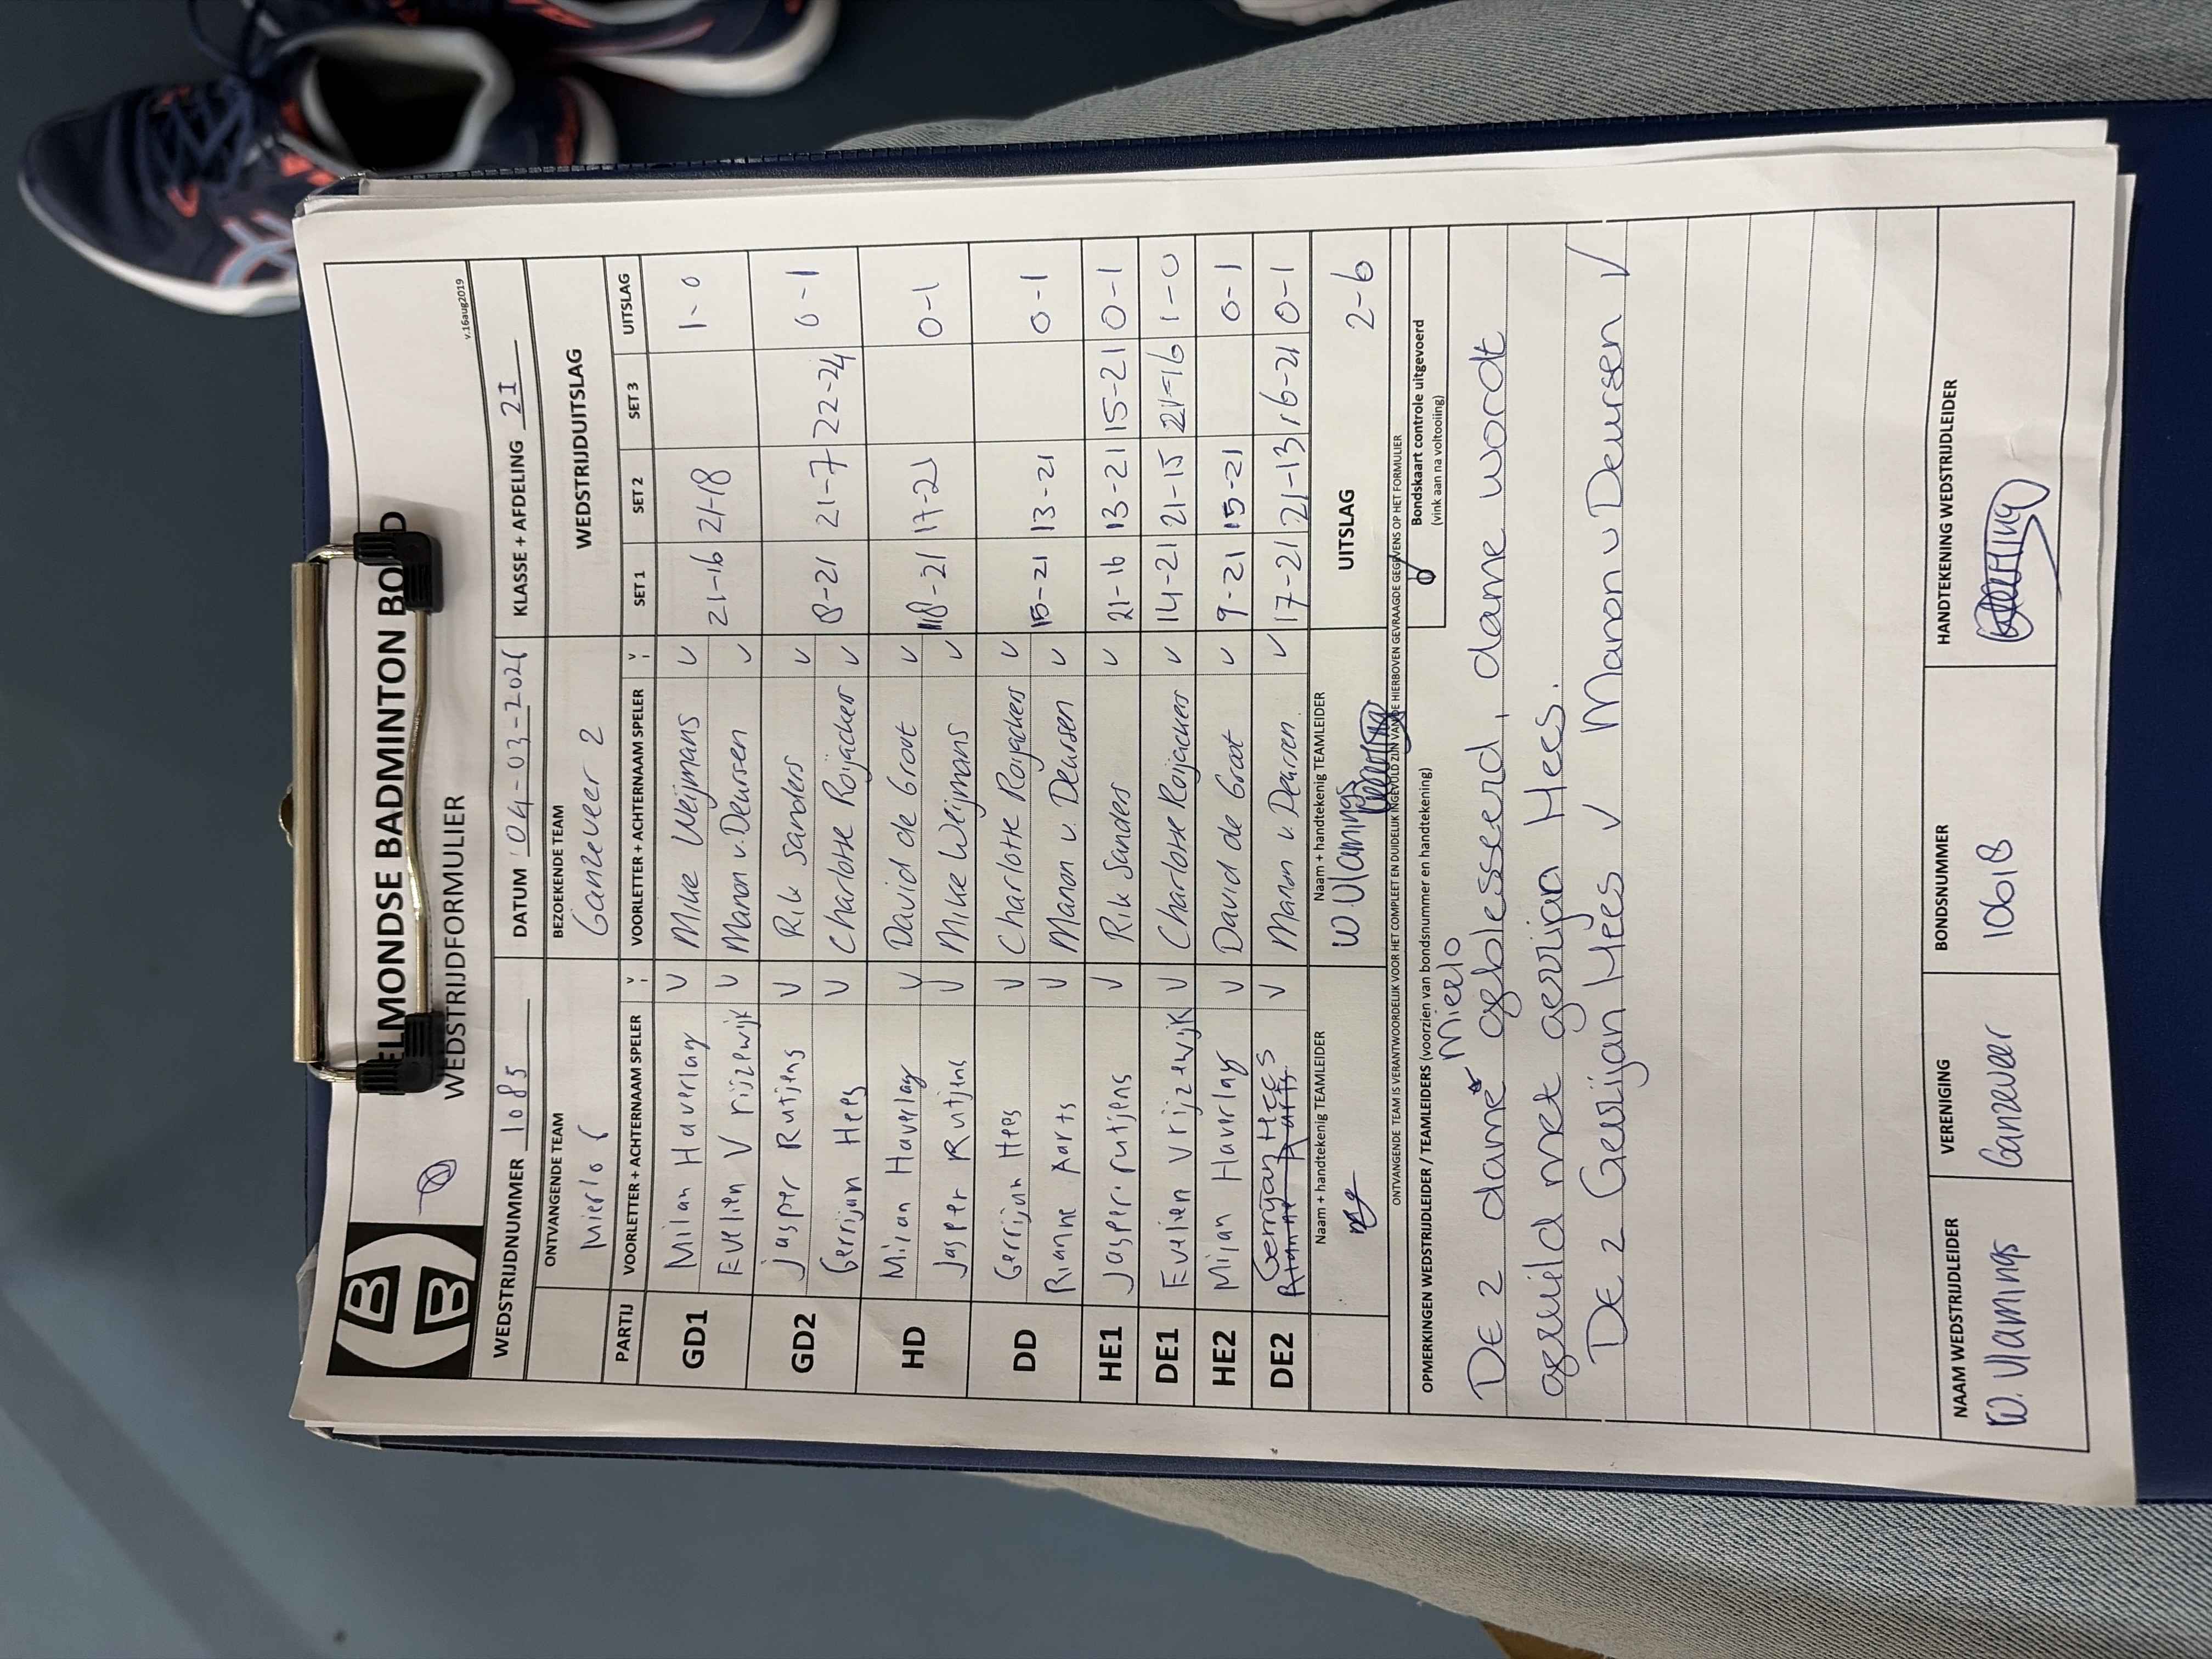 HB
ELMONDSE BADMINTON BO D
WEDSTRIJDFORMULIER
v.16aug2019
WEDSTRIJDNUMMER 1085 DATUM 04-03-202 KLASSE + AFDELING 2I
ONTVANGENDE TEAM BEZOEKENDE TEAM WEDSTRIJDUITSLAG
Mierlo Ganzeveer 2
PARTIJ VOORLETTER + ACHTERNAAM SPELER V VOORLETTER + ACHTERNAAM SPELER V SET 1 SET 2 SET 3 UITSLAG
GD1 Milan Haverlag V Mike Weijmans V 21-16 21-18 1-0
Evelien Vrijzewijk V Manon v. Deursen V
GD2 Jasper Rutjens V Rik Sanders V 8-21 21-7 22-24 0-1
Gerrijan Hees V Charlotte Roijackers V
HD Milan Haverlag V David de Groot V 18-21 17-21 0-1
Jasper Rutjens V Mike Weijmans V
DD Gerrijan Hees V Charlotte Roijackers V 15-21 13-21 0-1
Rianne Aarts V Manon v. Deursen V
HE1 Jasper rutjens V Rik Sanders V 21-16 13-21 15-21 0-1
DE1 Evelien Vrijzewijk V Charlotte Roijackers V 14-21 21-15 21-16 1-0
HE2 Milan Haverlag V David de Groot V 9-21 15-21 0-1
DE2 Gerrijan Hees Rianne Aarts V Manon v. Deursen V 17-21 21-13 16-21 0-1
Naam + handtekenig TEAMLEIDER Naam + handtekenig TEAMLEIDER UITSLAG 2-6
W Vlamings
ONTVANGENDE TEAM IS VERANTWOORDELIJK VOOR HET COMPLEET EN DUIDELIJK INGEVULD ZIJN VAN DE HIERBOVEN GEVRAAGDE GEGEVENS OP HET FORMULIER
OPMERKINGEN WEDSTRIJDLEIDER / TEAMLEIDERS (voorzien van bondsnummer en handtekening) Bondskaart controle uitgevoerd
(vink aan na voltooiing)
Mierlo
DE 2 dame geblesseerd, dame wordt
geruild met gerrijan Hees.
DE 2 Gerrijan Hees v Manon v Deursen V
NAAM WEDSTRIJDLEIDER VERENIGING BONDSNUMMER HANDTEKENING WEDSTRIJDLEIDER
W. Vlamings Ganzeveer 10618